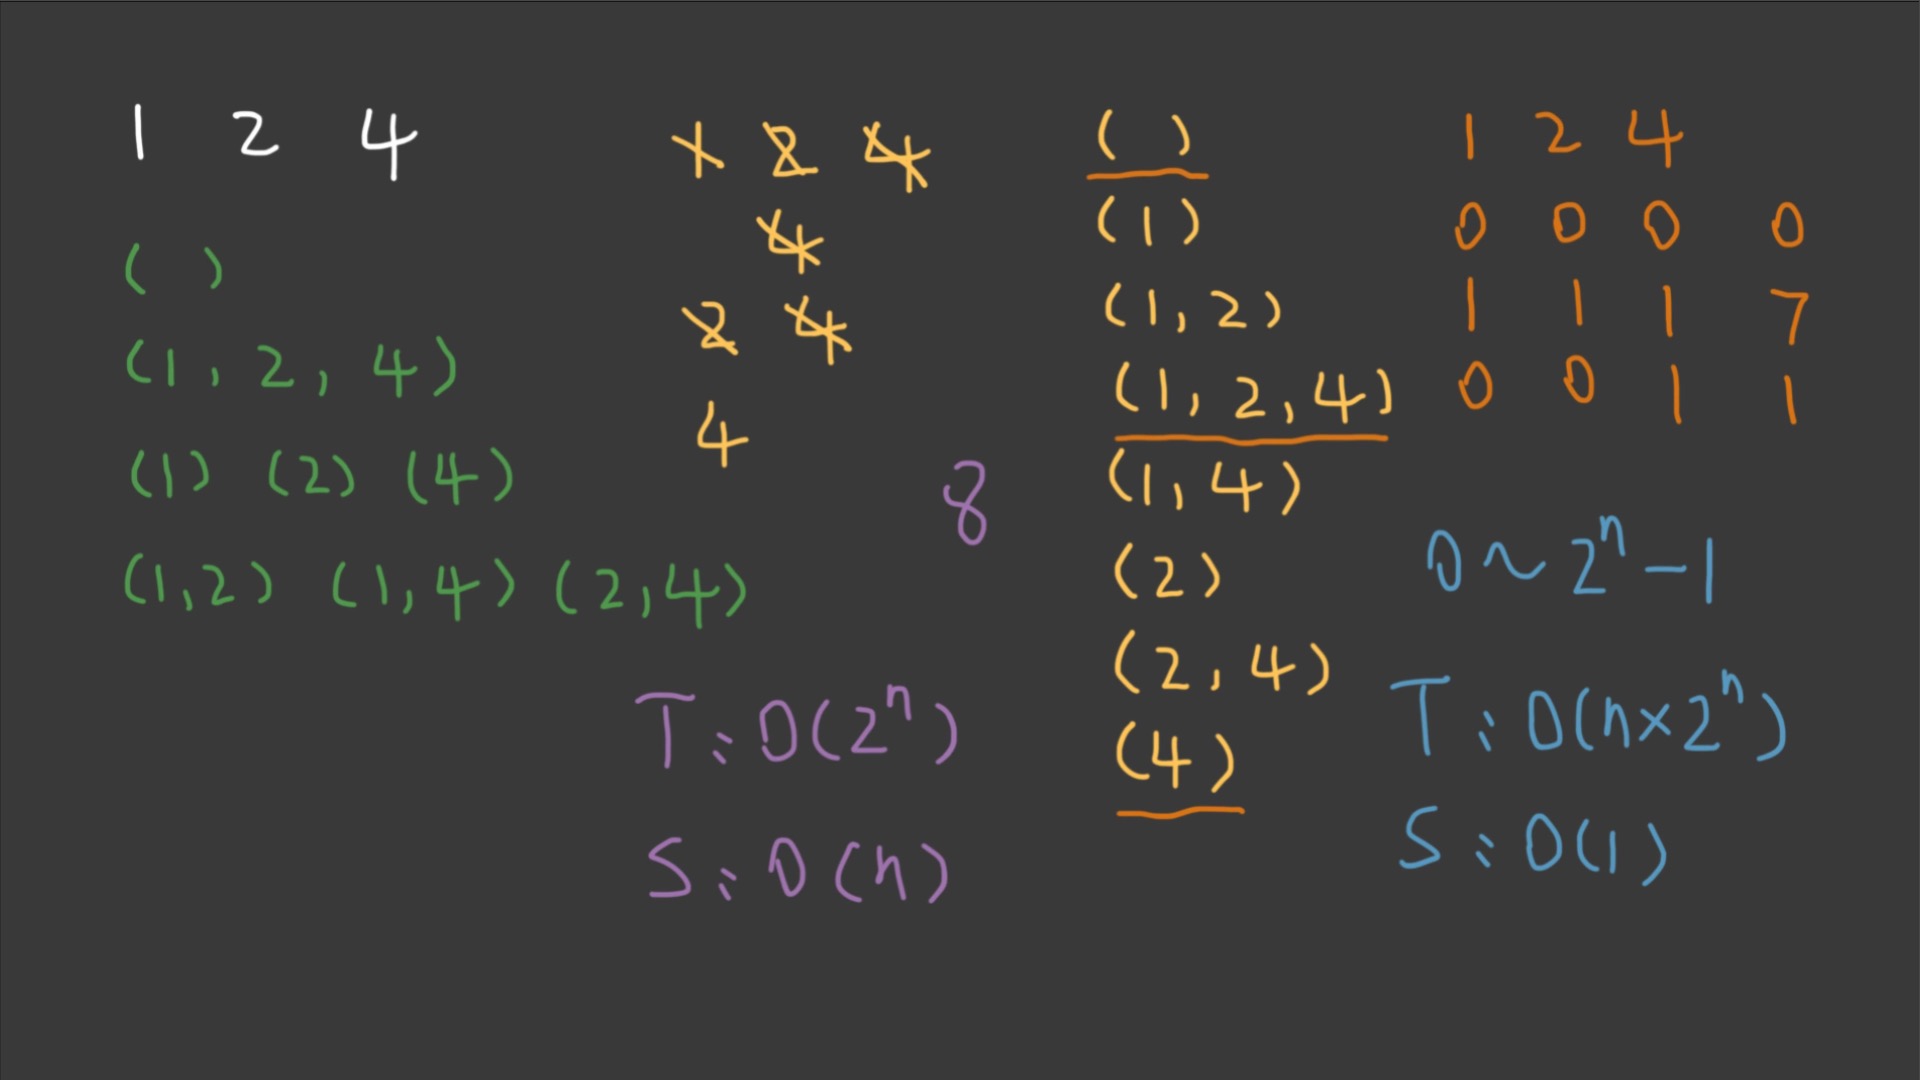 1 2 4
( )
(1, 2, 4)
(1) (2) (4)
(1,2) (1,4) (2,4)
1 2 4
4
2 4
4
8
T: O(2ⁿ)
S: O(n)
( )
(1)
(1,2)
(1,2,4)
(1,4)
(2)
(2,4)
(4)
1 2 4
0 0 0 0
1 1 1 7
0 0 1 1
0 ~ 2ⁿ-1
T: O(n×2ⁿ)
S: O(1)